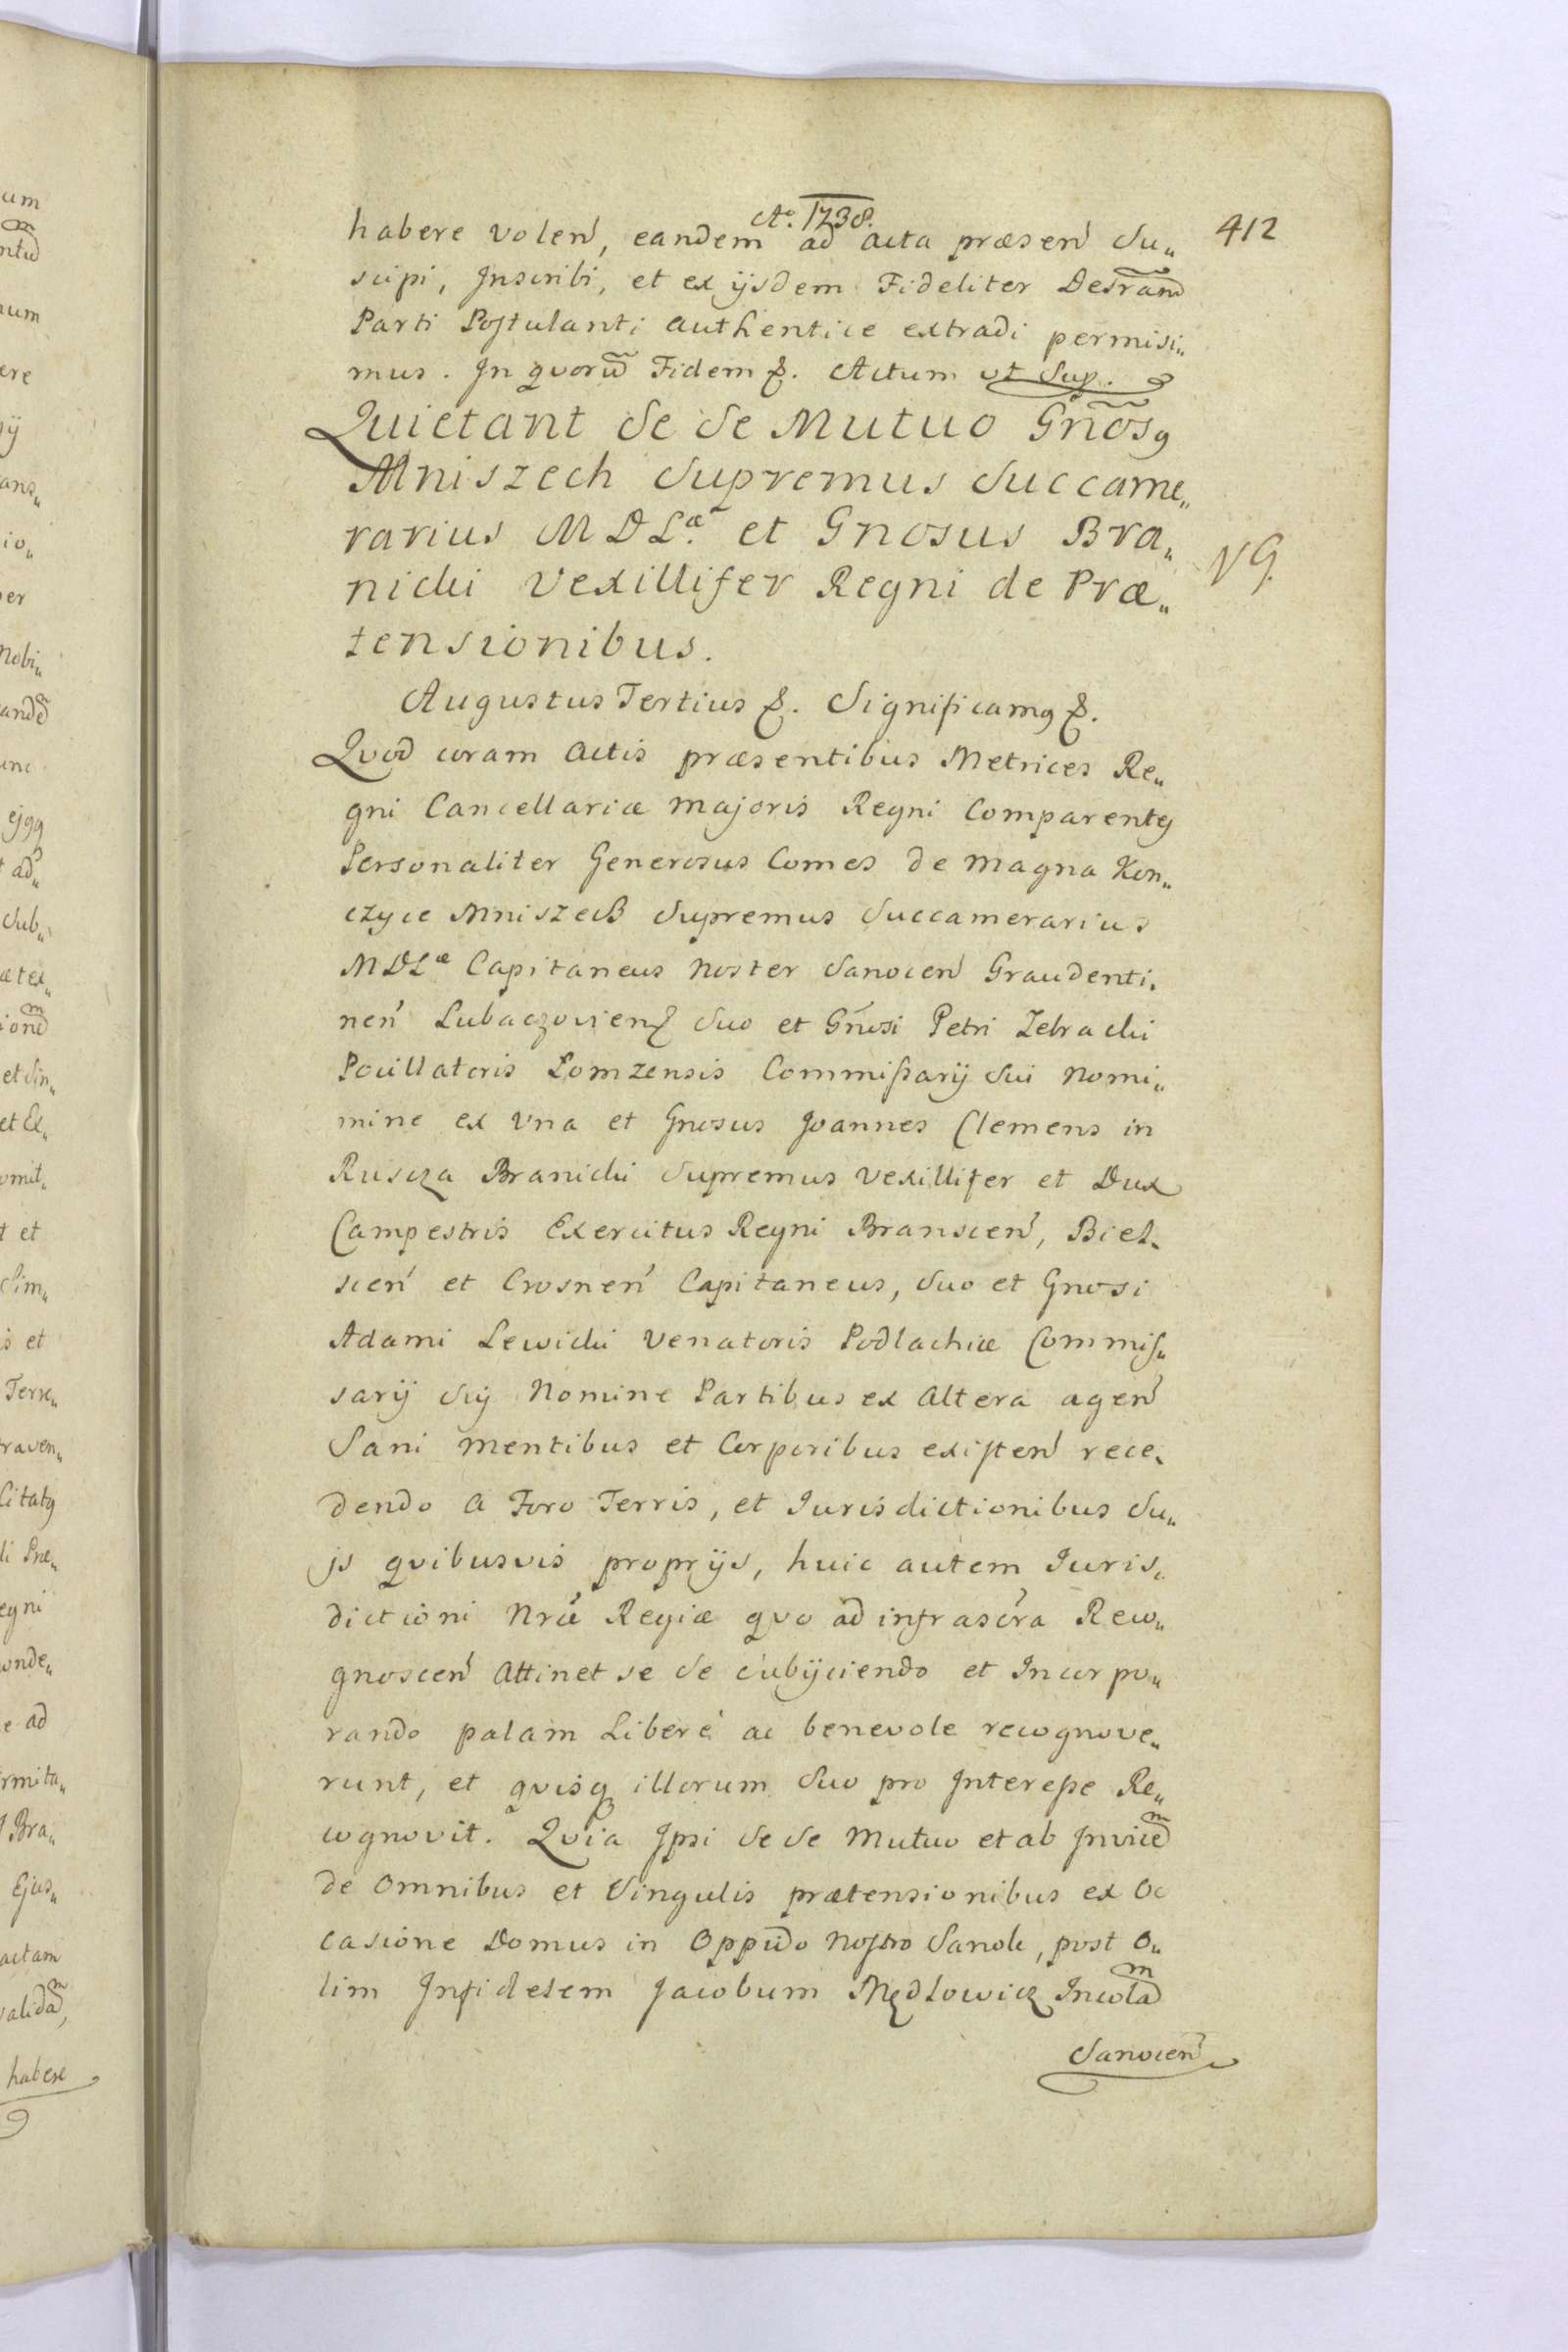 Aº. 1738.
412
habere volen̄, eandem ad acta præsen̄ su„
scipi, Inscribi, et ex ijsdem Fideliter Desr̃am̄
Parti Postulanti authentice extradi permisi„
mus. In qvorū Fidem &. Actum ut Sup.
Quietant se se Mutuo Gñosꝯ
Mniszech Supremus Succame„
rarius MDLæ. et Gnosus Bra„
nicki Vexillifer Regni de Præ„
tensionibus.
NG.
Augustus Tertius &. Significamꝯ &.
Qvod coram Actis præsentibus Metrices Re„
gni Cancellariæ Majoris Regni Comparentes
Personaliter Generosus Comes de Magna Kon„
czyce Mniszech Supremus Succamerarius
MDLæ Capitaneus Noster Sanocen̄ Graudenti„
nen̄ Lubaczovien̄ Suo et Gn̄osi Petri Zebracki
Pocillatoris Lomzensis Commissarij Sui Nomi„
mine ex una et Gnosus Joannes Clemens in
Ruscza Branicki Supremus Vexillifer et Dux
Campestris Exercitus Regni Branscen̄, Biel„
scen̄ et Crosnen̄ Capitaneus, Suo et Gnosi
Adami Lewicki Venatoris Podlachiæ Commis„
sarij Sij Nomine Partibus ex Altera agen̄
Sani mentibus et Corporibus existen̄ rece„
dendo a Foro Terris, et Jurisdictionibus Su„
js qvibusvis proprijs, huic autem Juris„
dictioni Nrǣ Regiæ qvo ad infrascr̄a Reco„
gnoscen̄ Attinet se se subijciendo et Incorpo„
rando palam Liberè ac benevole recognove„
runt, et qvisqꝫ illorum Suo pro Interesse Re„
cognovit. Qvia Ipsi se se Mutuo et ab Invicem̄
de Omnibus et Singulis prætensionibus ex Oc
casione Domus in Oppido Nostro Sanok, post O„
lim Infidelem Jacobum Mędlowicz Incolam̄
Sanocen̄